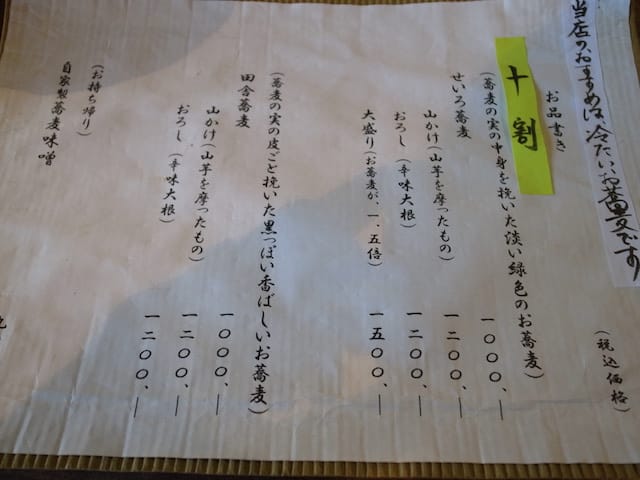 当店のおすすめは、冷たいお蕎麦です
お品書き
(税込価格)
十割
(蕎麦の実の中身を挽いた淡い緑色のお蕎麦)
せいろ蕎麦 一〇〇〇、—
山かけ(山芋を摩ったもの) 一二〇〇、—
おろし(辛味大根) 一二〇〇、—
大盛り(お蕎麦が、一、五倍) 一五〇〇、—
(蕎麦の実の皮ごと挽いた黒っぽい香ばしいお蕎麦)
田舎蕎麦 一〇〇〇、—
山かけ(山芋を摩ったもの) 一二〇〇、—
おろし(辛味大根) 一二〇〇、—
(お持ち帰り)
自家製蕎麦味噌